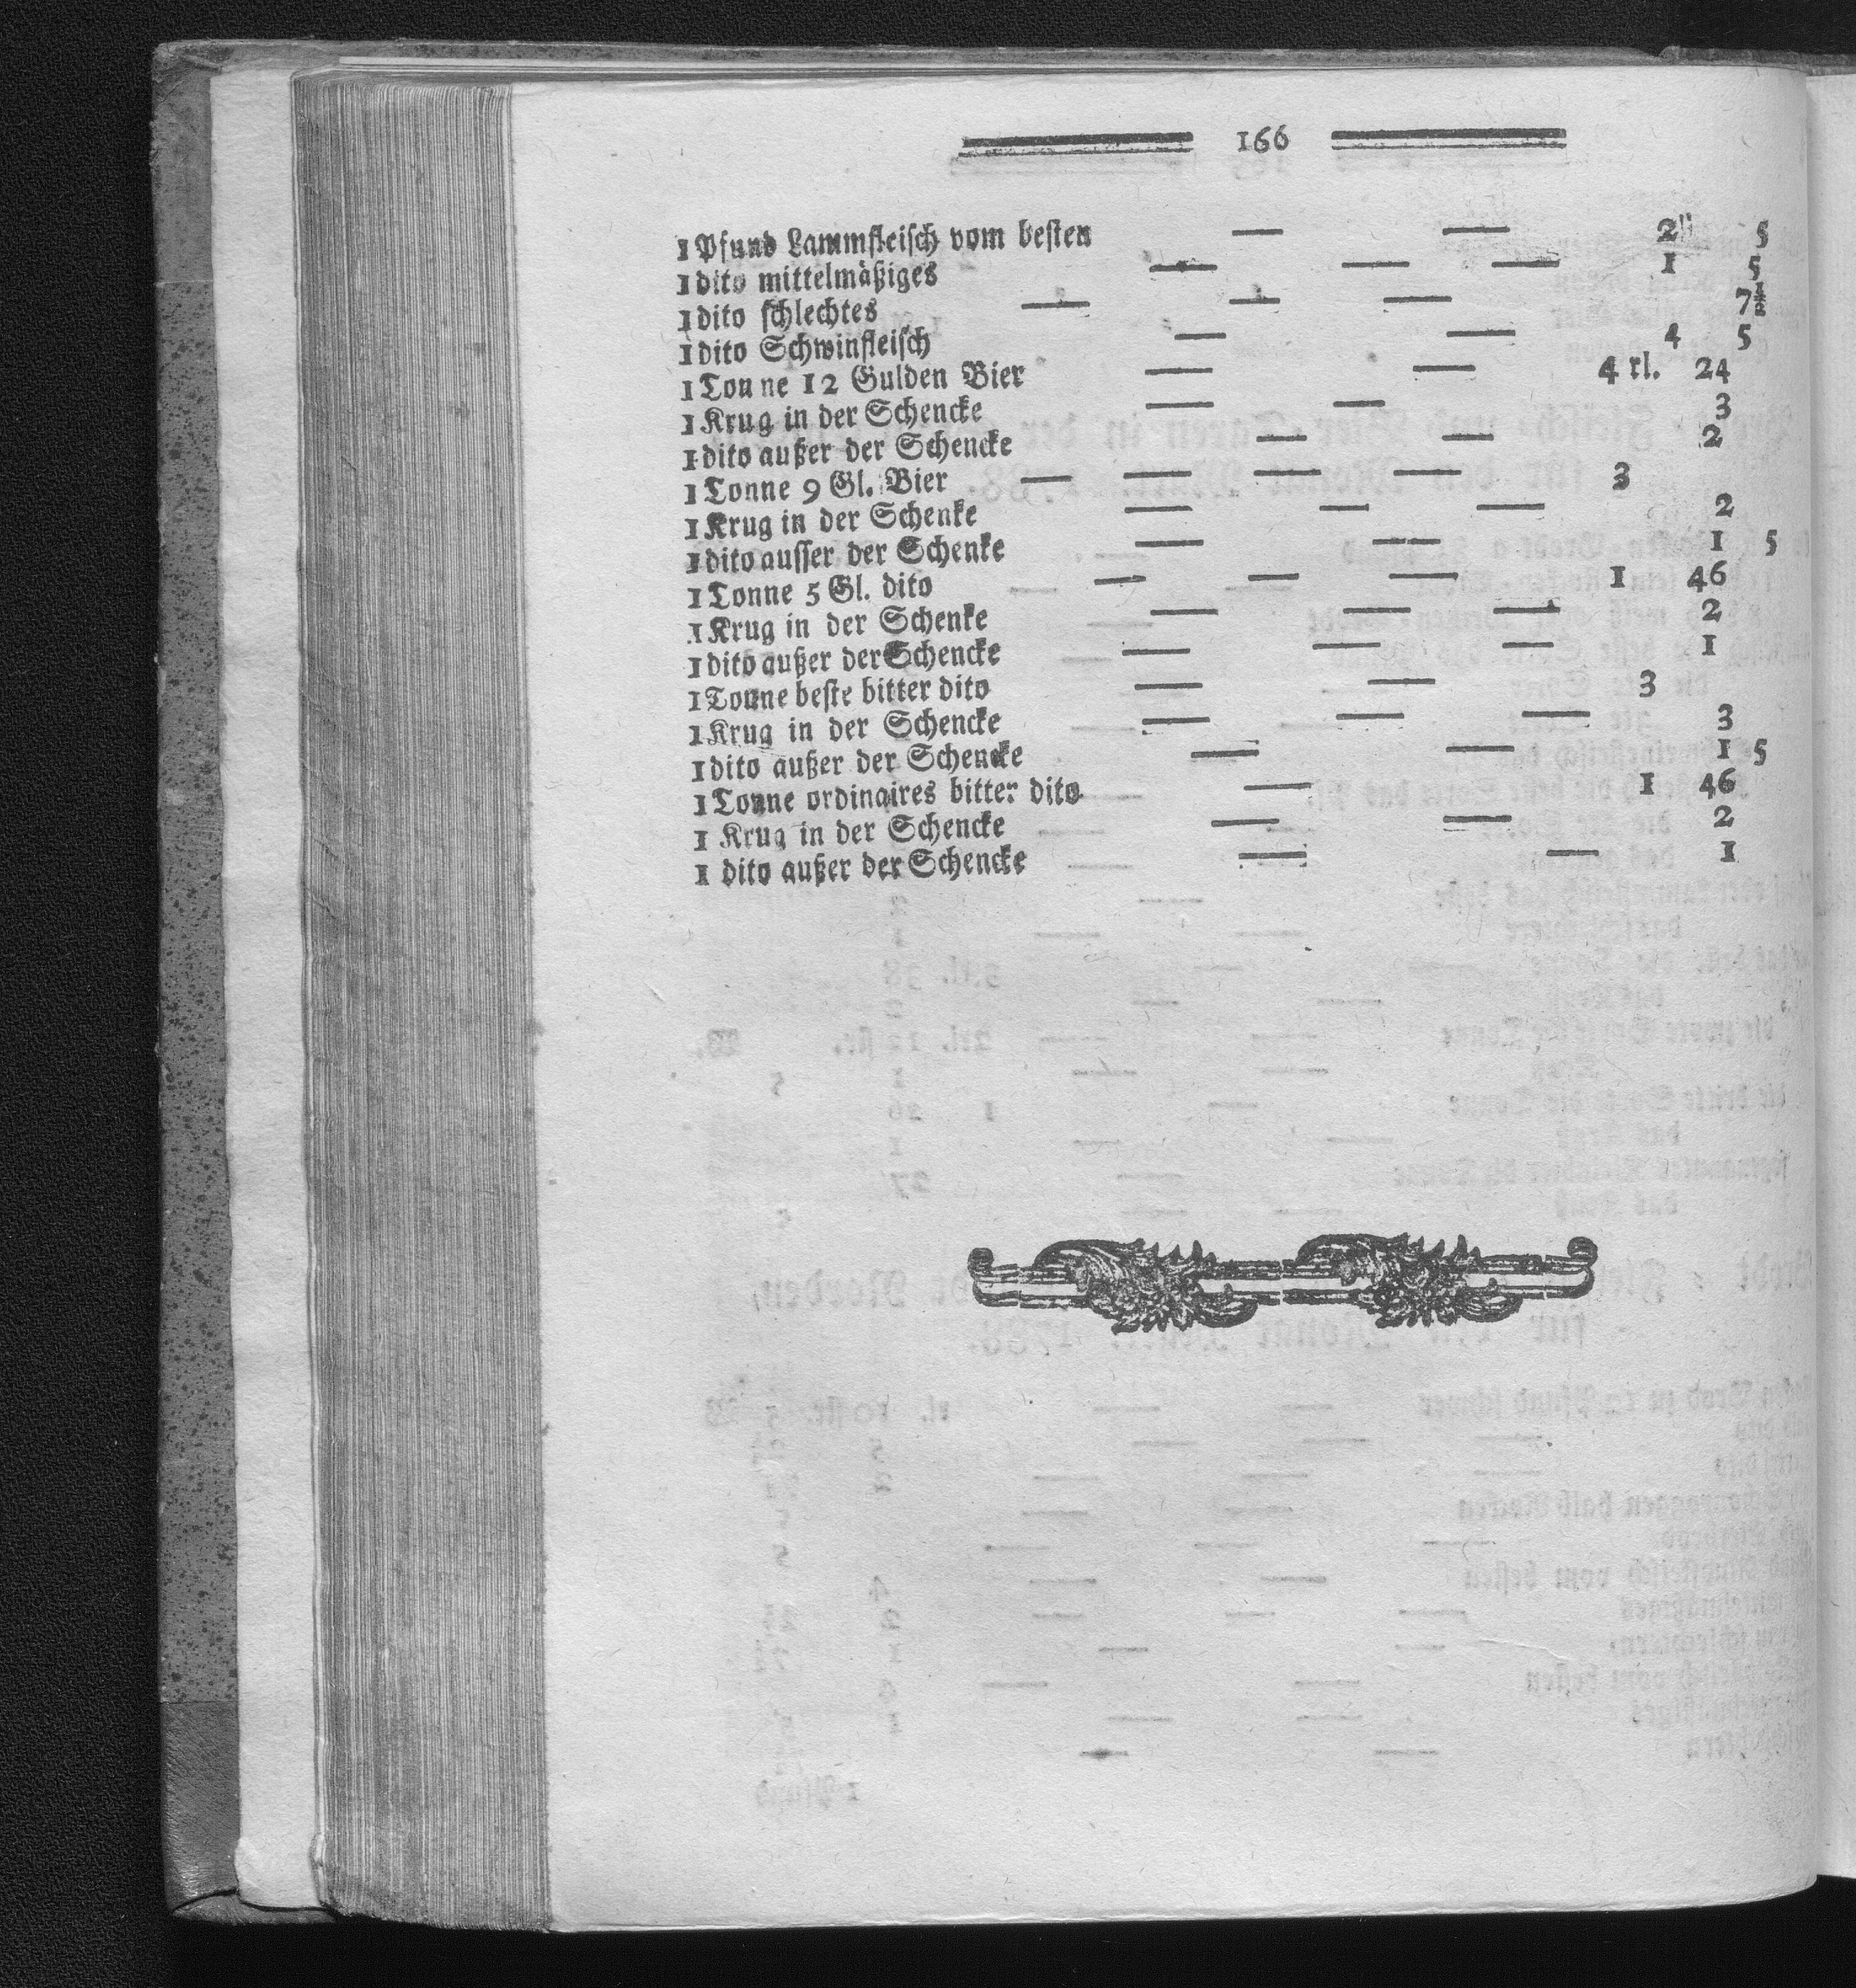 166
1 Pfund Lammfleisch vom besten — — 2 5
1 dito mittelmäßiges — — — 1 5
1 dito schlechtes — — — 7½
1 dito Schwinfleisch — — 4 5
1 Tonne 12 Gulden Bier — — 4 rl. 24
1 Krug in der Schencke — — 3
1 dito außer der Schencke — — 2
1 Tonne 9 Gl. Bier — — — — 3
1 Krug in der Schenke — — — 2
1 dito ausser der Schenke — — 1 5
1 Tonne 5 Gl. dito — — — 1 46
1 Krug in der Schenke — — — 2
1 dito außer der Schencke — — — 1
1 Tonne beste bitter dito — — 3
1 Krug in der Schencke — — — 3
1 dito außer der Schencke — — 1 5
1 Tonne ordinaires bitter dito — 1 46
1 Krug in der Schencke — — 2
1 dito außer der Schencke — — 1